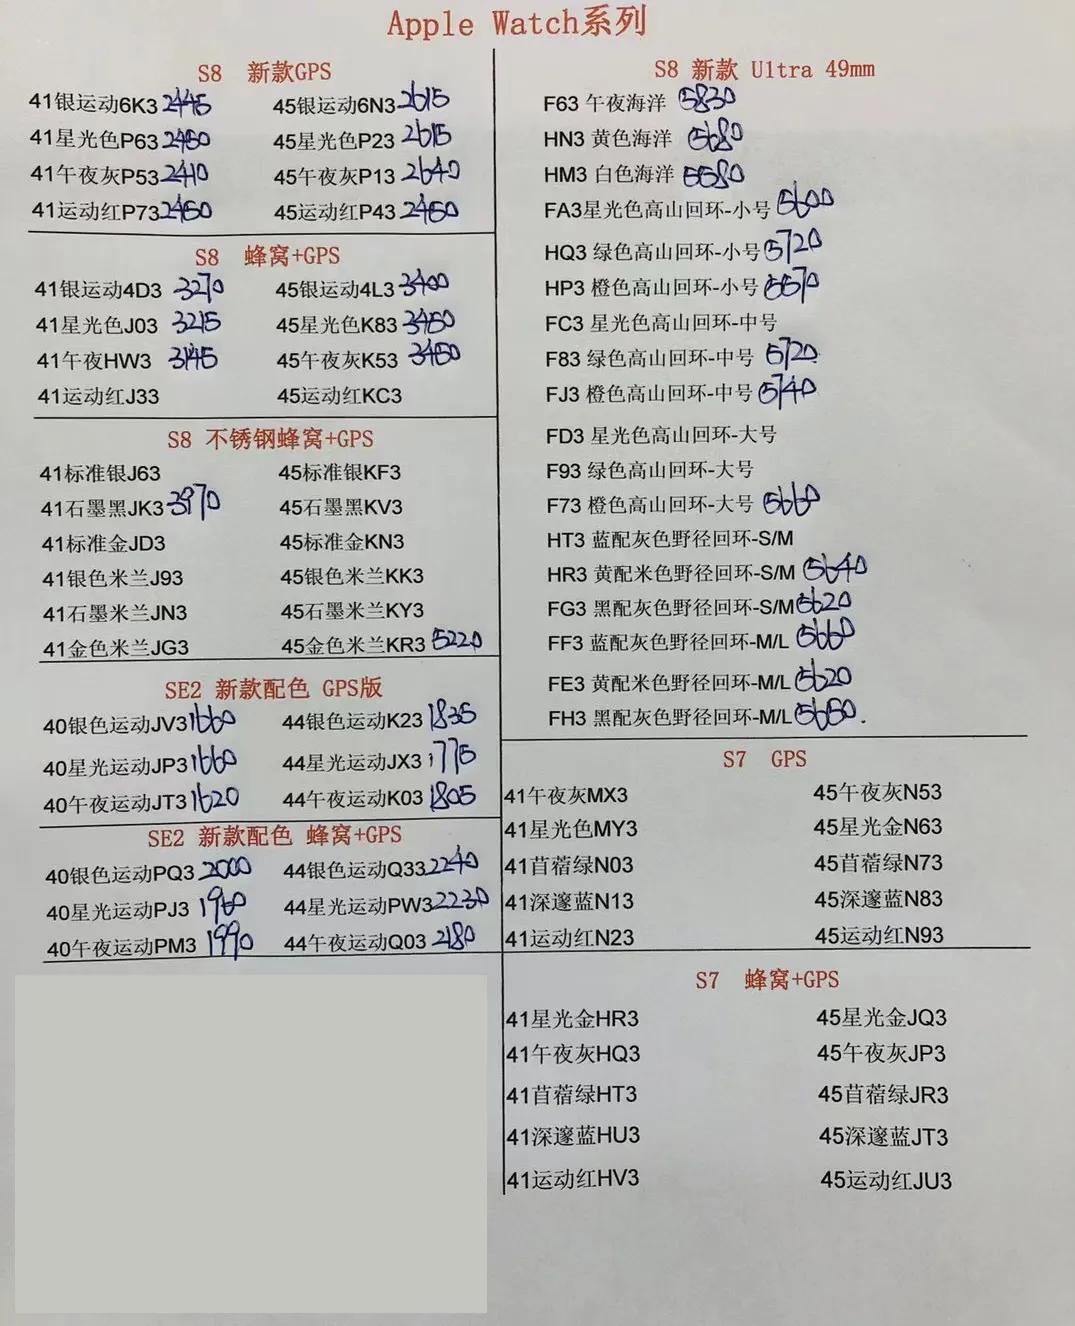 Apple Watch系列
S8 新款GPS
41银运动6K3 2445 45银运动6N3 2615
41星光色P63 2450 45星光色P23 2615
41午夜灰P53 2410 45午夜灰P13 2640
41运动红P73 2450 45运动红P43 2450
S8 蜂窝+GPS
41银运动4D3 3270 45银运动4L3 3400
41星光色J03 3215 45星光色K83 3450
41午夜HW3 3145 45午夜灰K53 3450
41运动红J33 45运动红KC3
S8 不锈钢蜂窝+GPS
41标准银J63 45标准银KF3
41石墨黑JK3 3970 45石墨黑KV3
41标准金JD3 45标准金KN3
41银色米兰J93 45银色米兰KK3
41石墨米兰JN3 45石墨米兰KY3
41金色米兰JG3 45金色米兰KR3 5220
SE2 新款配色 GPS版
40银色运动JV3 1660 44银色运动K23 1835
40星光运动JP3 1660 44星光运动JX3 1775
40午夜运动JT3 1620 44午夜运动K03 1805
SE2 新款配色 蜂窝+GPS
40银色运动PQ3 2000 44银色运动Q33 2240
40星光运动PJ3 1960 44星光运动PW3 2230
40午夜运动PM3 1990 44午夜运动Q03 2180
S8 新款 Ultra 49mm
F63 午夜海洋 5830
HN3 黄色海洋 5680
HM3 白色海洋 5580
FA3星光色高山回环-小号 5600
HQ3 绿色高山回环-小号 5720
HP3 橙色高山回环-小号 5570
FC3 星光色高山回环-中号
F83 绿色高山回环-中号 5720
FJ3 橙色高山回环-中号 5740
FD3 星光色高山回环-大号
F93 绿色高山回环-大号
F73 橙色高山回环-大号 5660
HT3 蓝配灰色野径回环-S/M
HR3 黄配米色野径回环-S/M 5640
FG3 黑配灰色野径回环-S/M 5620
FF3 蓝配灰色野径回环-M/L 5660
FE3 黄配米色野径回环-M/L 5620
FH3 黑配灰色野径回环-M/L 5650.
S7 GPS
41午夜灰MX3 45午夜灰N53
41星光色MY3 45星光金N63
41苜蓿绿N03 45苜蓿绿N73
41深邃蓝N13 45深邃蓝N83
41运动红N23 45运动红N93
S7 蜂窝+GPS
41星光金HR3 45星光金JQ3
41午夜灰HQ3 45午夜灰JP3
41苜蓿绿HT3 45苜蓿绿JR3
41深邃蓝HU3 45深邃蓝JT3
41运动红HV3 45运动红JU3